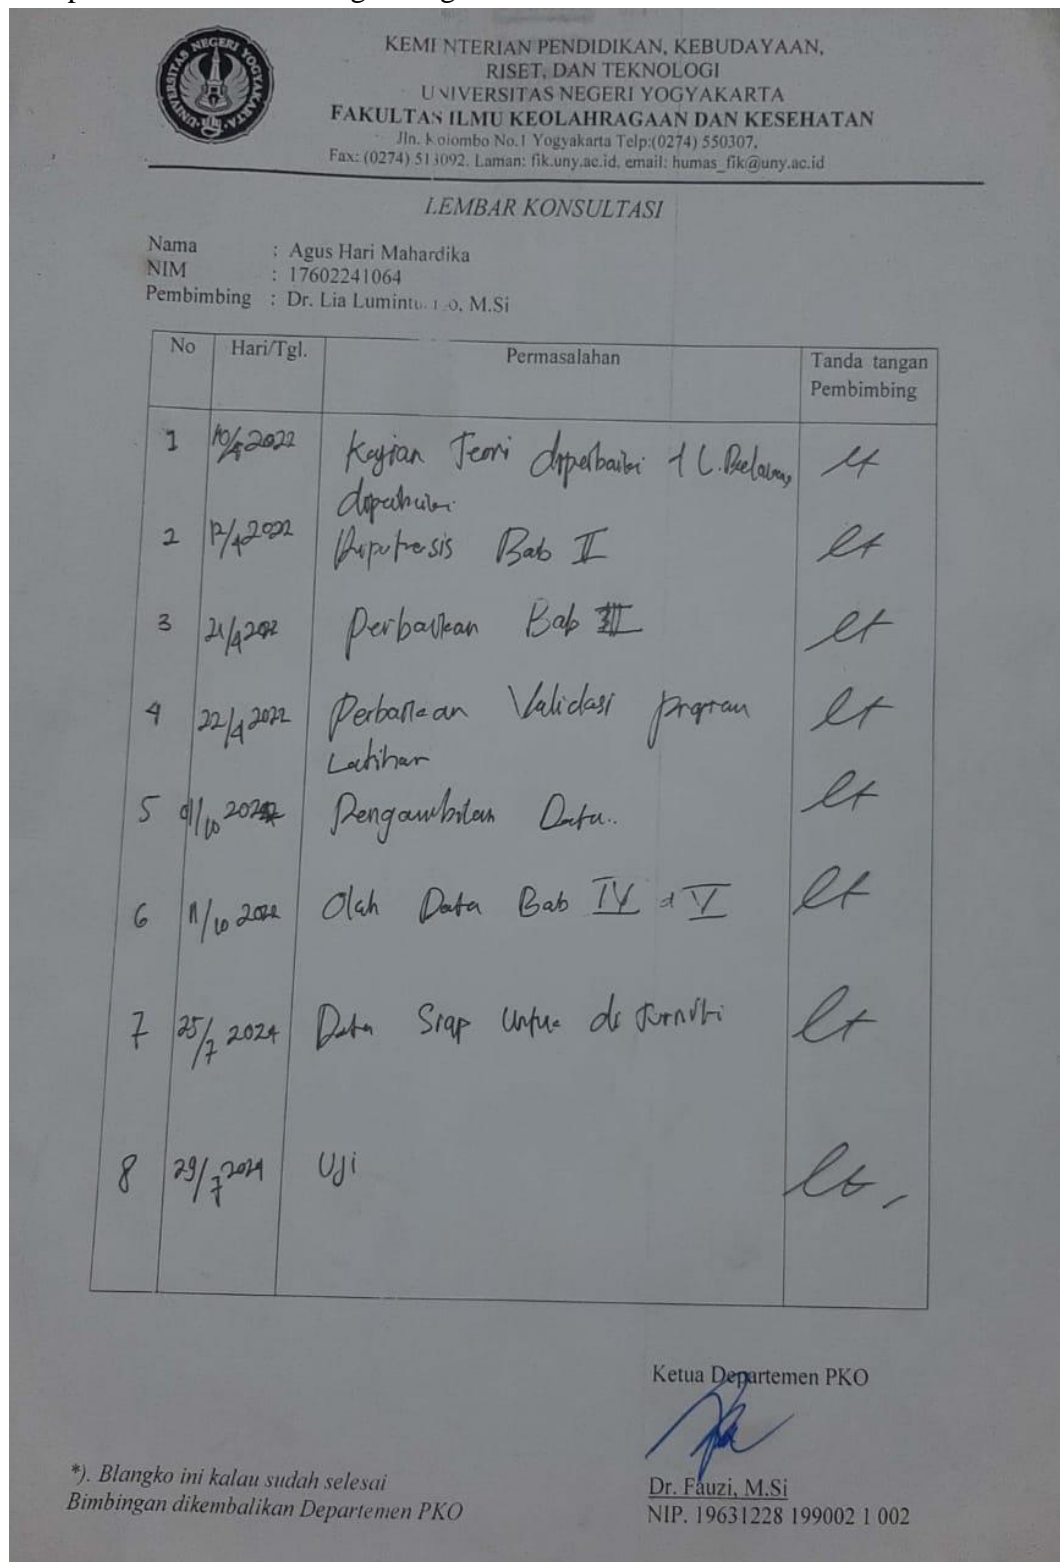 UNIVERSITAS NEGERI YOGYAKARTA
KEMENTERIAN PENDIDIKAN, KEBUDAYAAN,
RISET, DAN TEKNOLOGI
UNIVERSITAS NEGERI YOGYAKARTA
FAKULTAS ILMU KEOLAHRAGAAN DAN KESEHATAN
Jln. Kolombo No.1 Yogyakarta Telp:(0274) 550307,
Fax: (0274) 513092. Laman: fik.uny.ac.id, email: humas_fik@uny.ac.id
LEMBAR KONSULTASI
Nama : Agus Hari Mahardika
NIM : 17602241064
Pembimbing : Dr. Lia Lumintu, M.Si
No Hari/Tgl. Permasalahan Tanda tangan
Pembimbing
1 2022 Kajian Teori diperbaiki
2 12/4 2022 Hipotesis Bab II
3 21/4 2022 Perbaikan Bab III
4 22/4 2022 Perbaikan Validasi program
Latihan
5 01/10 Pengambilan Data..
6 11/10 2022 Olah Data Bab IV & V
7 25/7 2024 Data Siap Untuk di
8 29/7 2024 Uji
Ketua Departemen PKO
*). Blangko ini kalau sudah selesai
Bimbingan dikembalikan Departemen PKO
Dr. Fauzi, M.Si
NIP. 19631228 199002 1 002